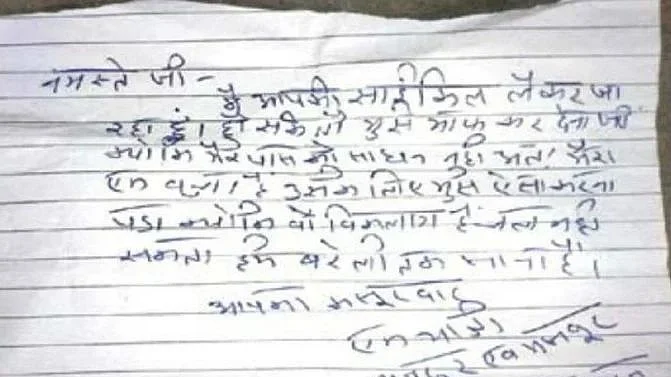 नमस्ते जी -
मै आपकी साईकिल लेकर जा
रहा हूं। हो सके तो मुझे माफ कर देना जी
क्योकि मेरे पास को साधन नही अत: मेरा
एक बच्चा है उसके लिए मुझे ऐसा करना
पडा क्योकि वो विकलांग है चल नही
सकता हमे बरेली तक जाना है।
आपका कसूरवार
एक यात्री
मजदूर एवं मजबूर